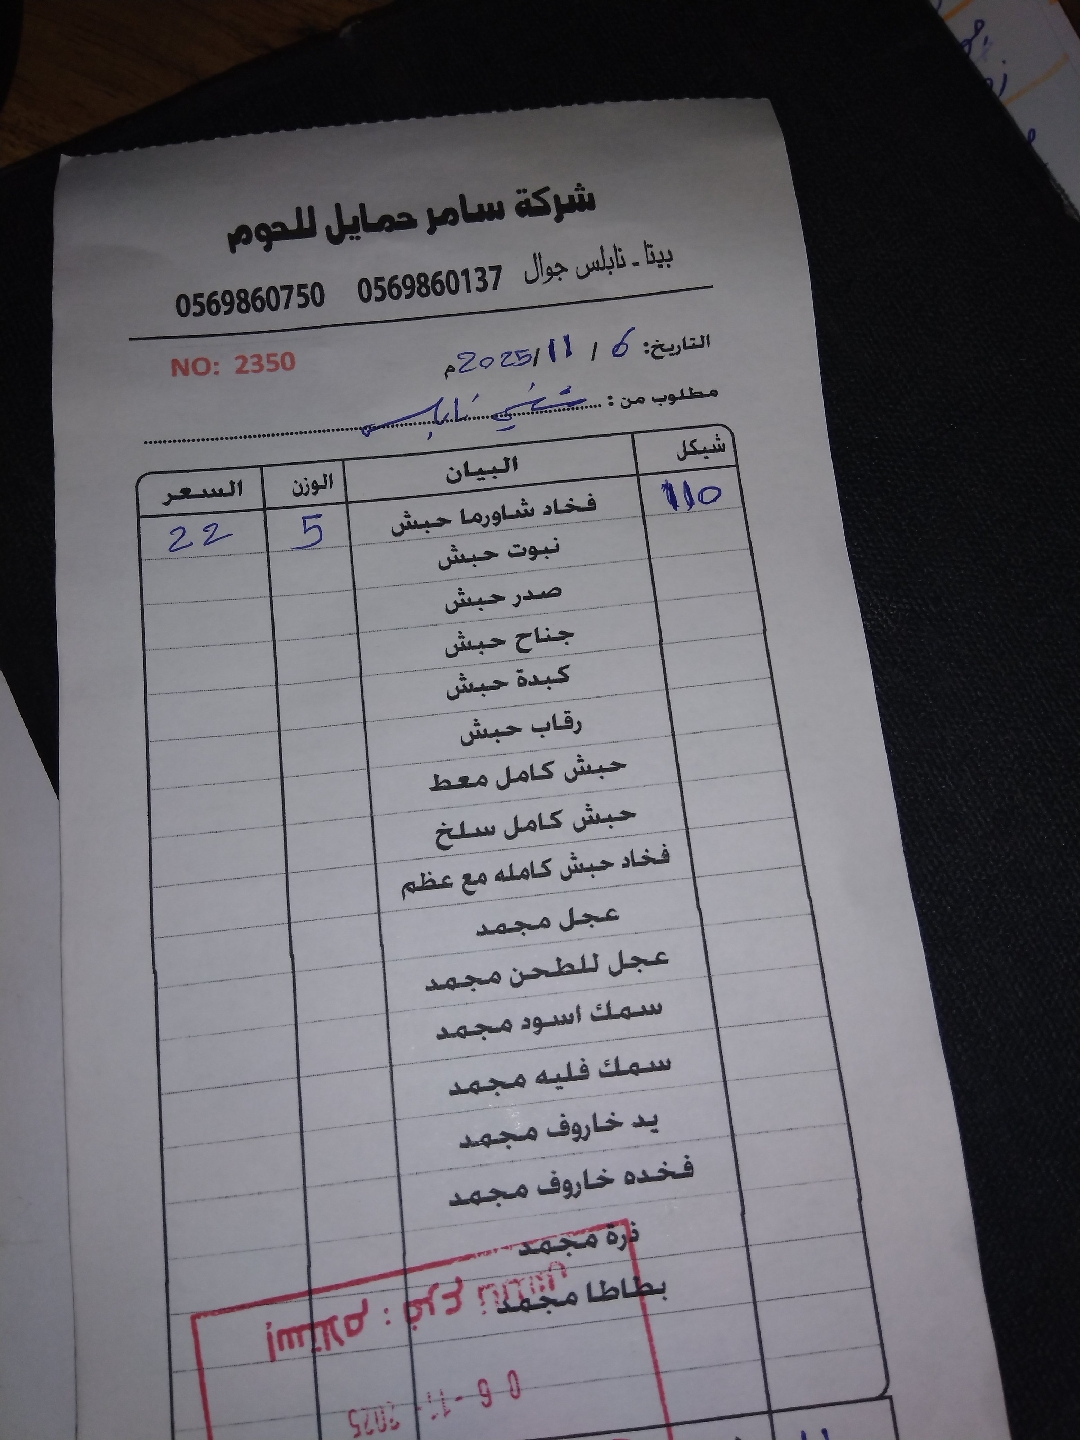 شركة سامر حمايل للحوم
بيتا - نابلس جوال 0569860137 0569860750
التاريخ: 6 / 11 / 2025م
NO: 2350
مطلوب من : نابلس
شيكل البيان الوزن السعر
110 فخاد شاورما حبش 5 22
نبوت حبش
صدر حبش
جناح حبش
كبدة حبش
رقاب حبش
حبش كامل معط
حبش كامل سلخ
فخاد حبش كامله مع عظم
عجل مجمد
عجل للطحن مجمد
سمك اسود مجمد
سمك فليه مجمد
يد خاروف مجمد
فخده خاروف مجمد
ذرة مجمد
بطاطا مجمد
إستلام : فرع نابلس
06-11-2025